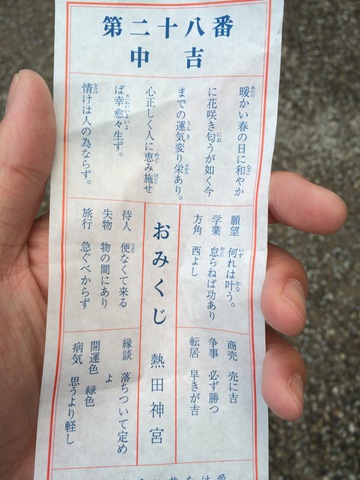 第二十八番
中吉
暖かい春の日に和やか
に花咲き匂うが如く今
までの運気変り栄あり。
心正しく人に恵み施せ
ば幸愈々生ず。
情けは人の為ならず。
願望 何れは叶う。
学業 怠らねば功あり
方角 西よし
商売 売に吉
争事 必ず勝つ
転居 早きが吉
おみくじ 熱田神宮
待人 便なくて来る
失物 物の間にあり
旅行 急ぐべからず
縁談 落ちついて定め
よ
開運色 緑色
病気 思うより軽し